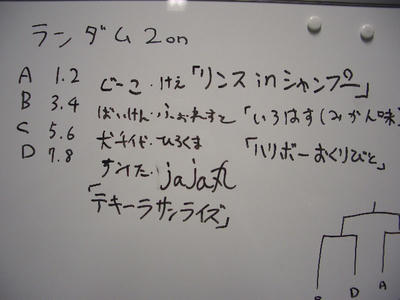 ランダム2on
A 1.2 じーこ・けえ「リンスinシャンプー」
B 3.4 ばいけん・ふぉれすと「いろはす(みかん味)
C 5.6 犬千代・ひろくま「ハリボーおくりびと」
D 7.8 jaja丸
「テキーラサンライズ」
D A